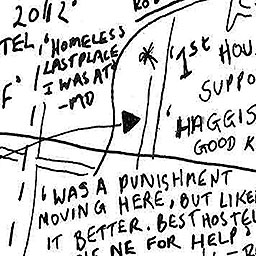 2012
TEL,
'HOMELESS
LAST PLACE
I WAS AT'
-MD
F'
*
'1st HOU
SUPPO
'HAGGIS
GOOD K
'WAS A PUNISHMENT
MOVING HERE, BUT LIKE
IT BETTER. BEST HOSTEL
NE FOR HELP'